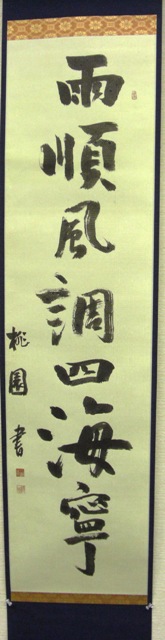 雨順風調四海寧
桃園書